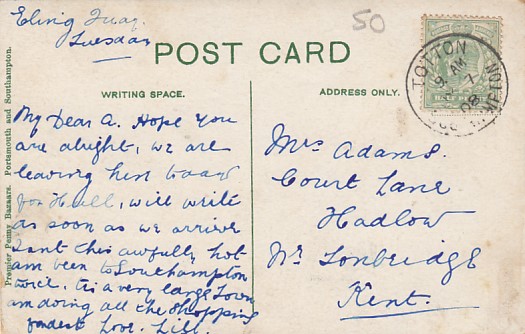 Eling Quay
Tuesday
50
POST CARD
WRITING SPACE.
ADDRESS ONLY.
Premier Penny Bazaars. Portsmouth and Southampton.
My Dear A. Hope you
are alright, we are
leaving here today
for Hull, will write
as soon as we arrive
Isnt this awfully hot
am been to Southampton
twice. Tis a very large Town
am doing all the shopping
fondest Love. Lill.
Mrs Adams.
Court Lane.
Hadlow
Nr Tonbridge
Kent.
TOTTON
9 AM
JY 1
08
SOUTHAMPTON